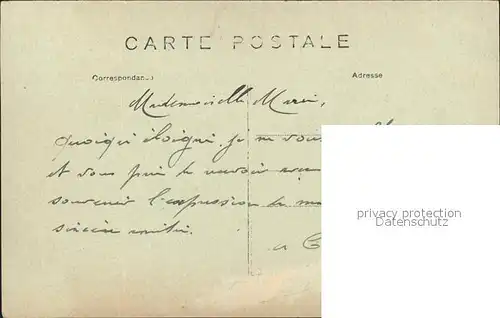 CARTE POSTALE
Correspondance
Adresse
Mademoiselle Marie,
quoique éloigné, je ne vous
et vous prie de recevoir avec
souvenir l'expression de ma
sincère amitié.
privacy protection
Datenschutz